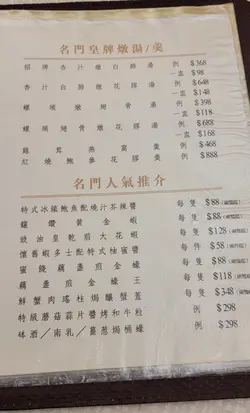 名門皇牌燉湯/羹
招牌杏汁燉白肺湯 例 $368
一盅 $98
杏汁白肺燉花膠湯 例 $648
一盅 $148
螺頭燉翅骨湯 例 $398
一盅 $118
螺頭翅骨燉花膠湯 例 $688
一盅 $168
雞茸燕窩羹 例 $468
紅燒鮑參花膠羹 例 $888
名門人氣推介
特式冰鎮鮑魚配燒汁芥辣醬 每隻 $88
鑲鑽黃金蝦 每隻 $88
豉油皇乾煎大花蝦 每隻 $128
懷舊蝦多士配特式柚蜜醬 每件 $58
蜜餞藕盞煎金蠔 每隻 $88
藕盞煎金蠔王 每隻 $118
鮮蟹肉瑤柱焗釀蟹蓋 每隻 $348
特級蘑菇蒜片醬烤和牛粒 例 $298
砵酒/南乳/薑葱焗桶蠔 例 $298